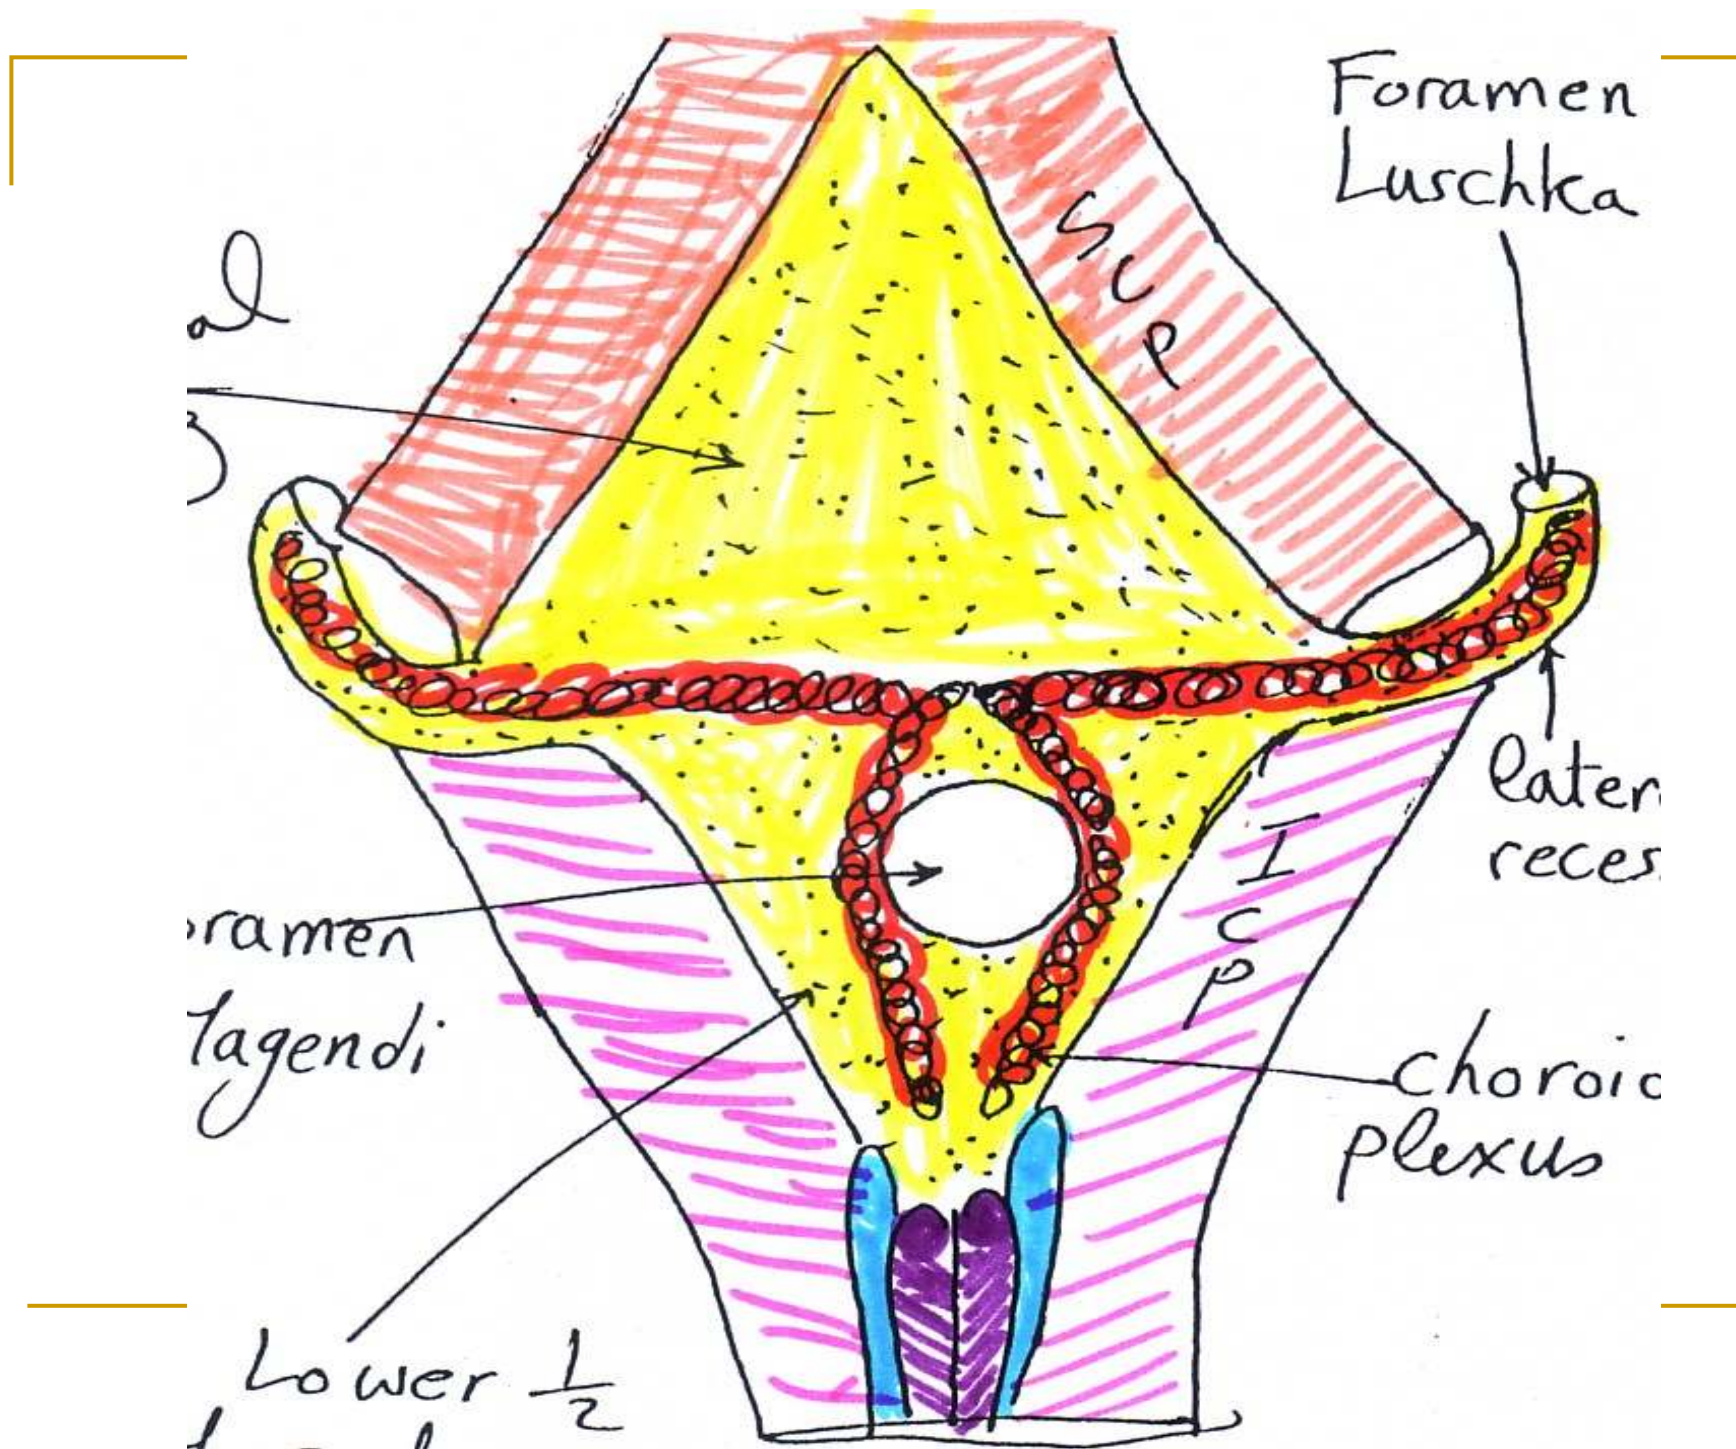 Foramen
Luschka
al
SCP
later
reces
ICP
oramen
Magendi
choroid
plexus
Lower 1/2